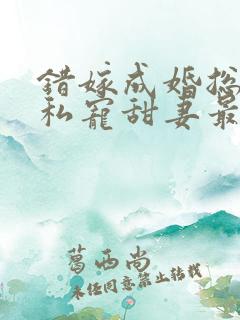 错嫁成婚总
私宠甜妻最
葛西尚
未经同意禁止转载